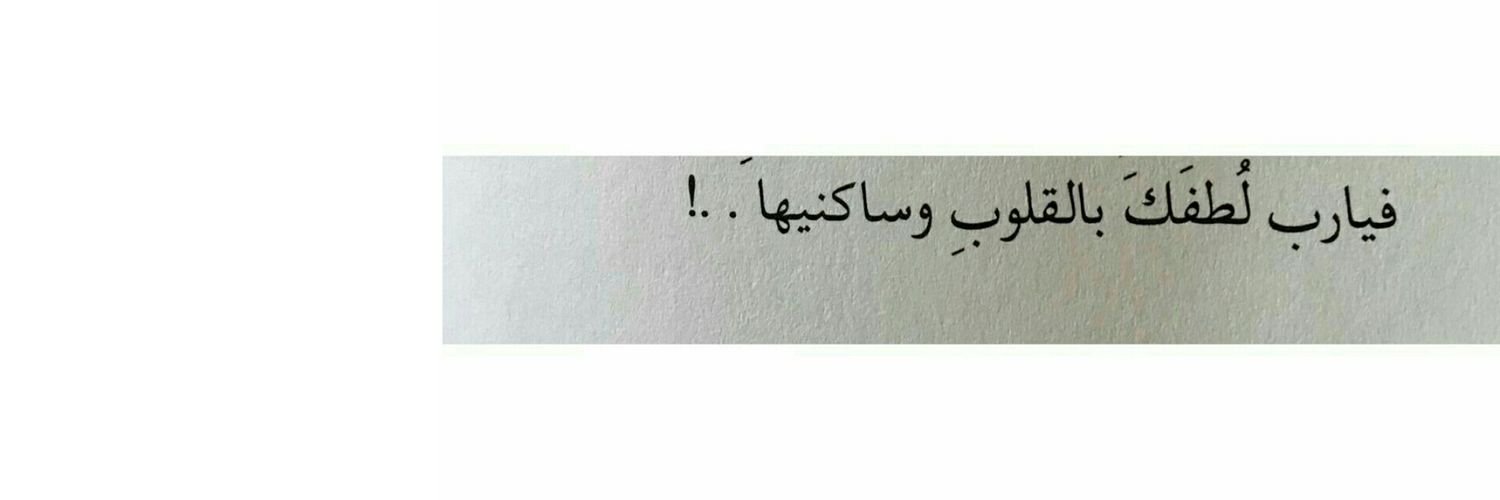 فيارب لُطفَكَ بالقلوبِ وساكنيها . .!